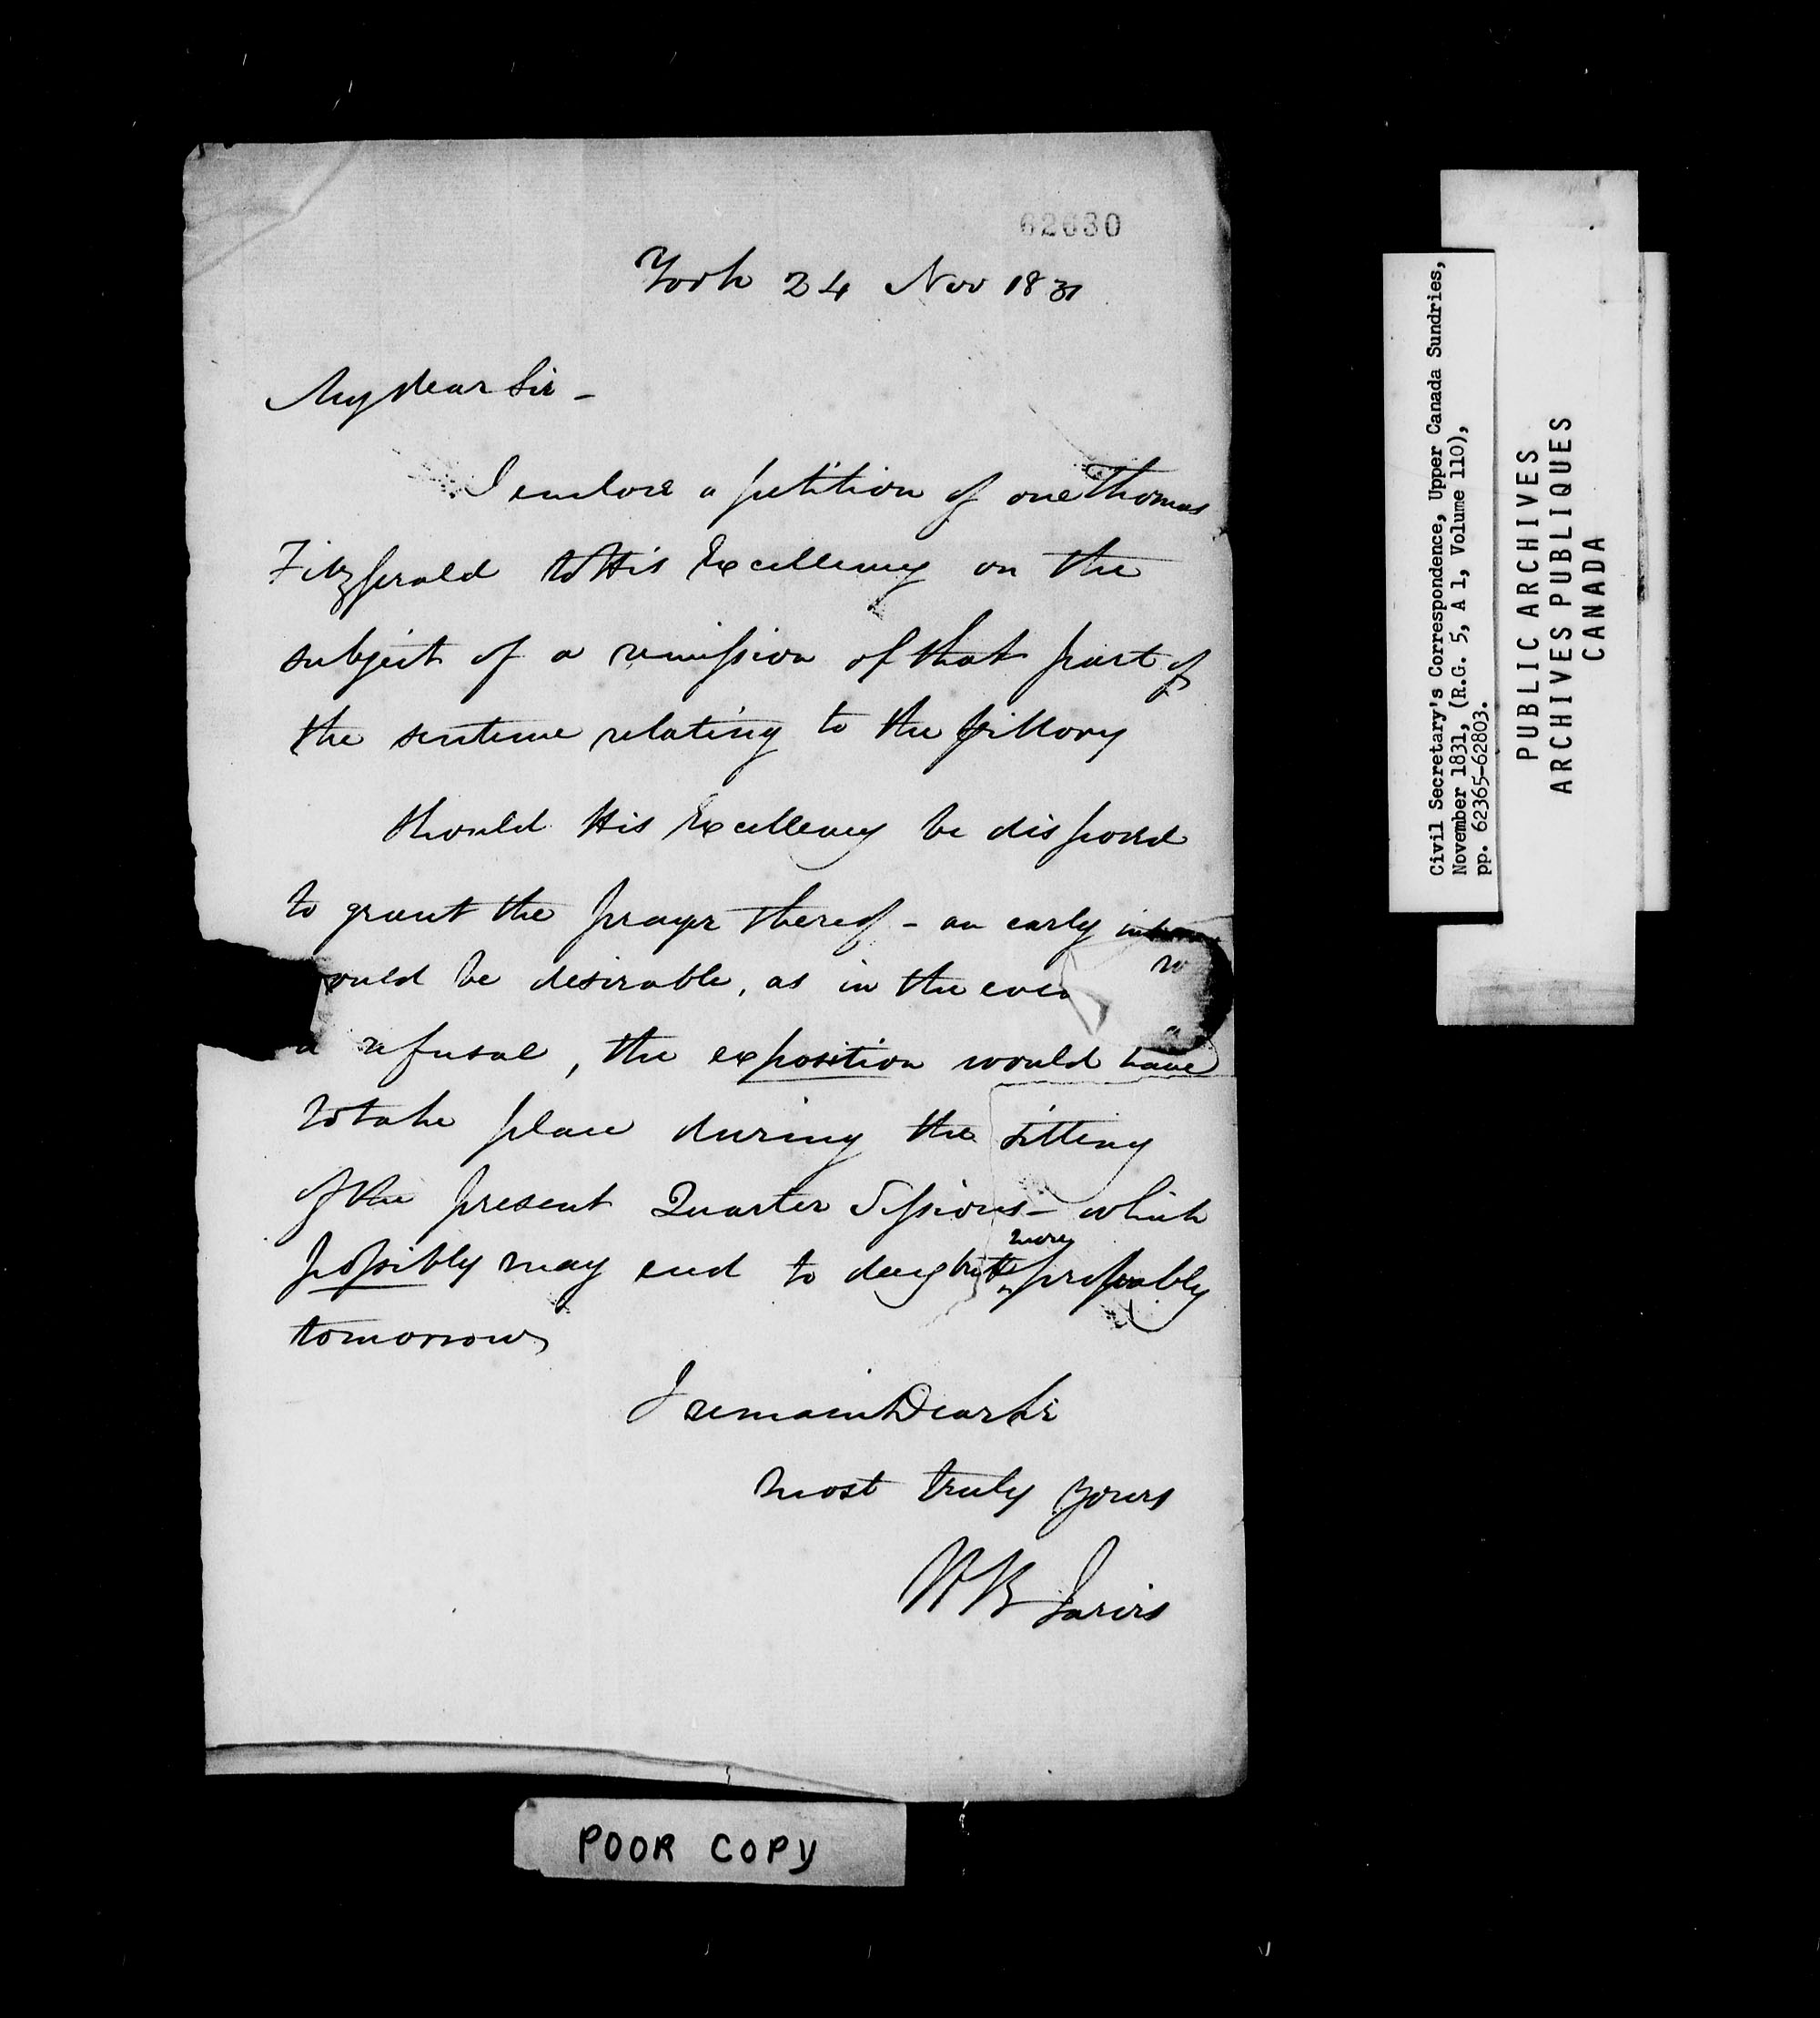 62630
York 24 Nov 1831
My dear Sir –
I enclose a petition of one Thomas
Fitzgerald to His Excellency on the
subject of a remission of that part of
the sentence relating to the pillory
Should His Excellency be disposed
to grant the prayer thereof – an early
ould be desirable, as in the even
a refusal, the exposition would have
to take place during the sitting
of the present Quarter Sessions – which
possibly may end to day but more probably
tomorrow
I remain Dear Sir
most truly yours
W B Jarvis
POOR COPY
Civil Secretary's Correspondence, Upper Canada Sundries,
November 1831, (R.G. 5, A 1, Volume 110),
pp. 62365-62803.
PUBLIC ARCHIVES
ARCHIVES PUBLIQUES
CANADA